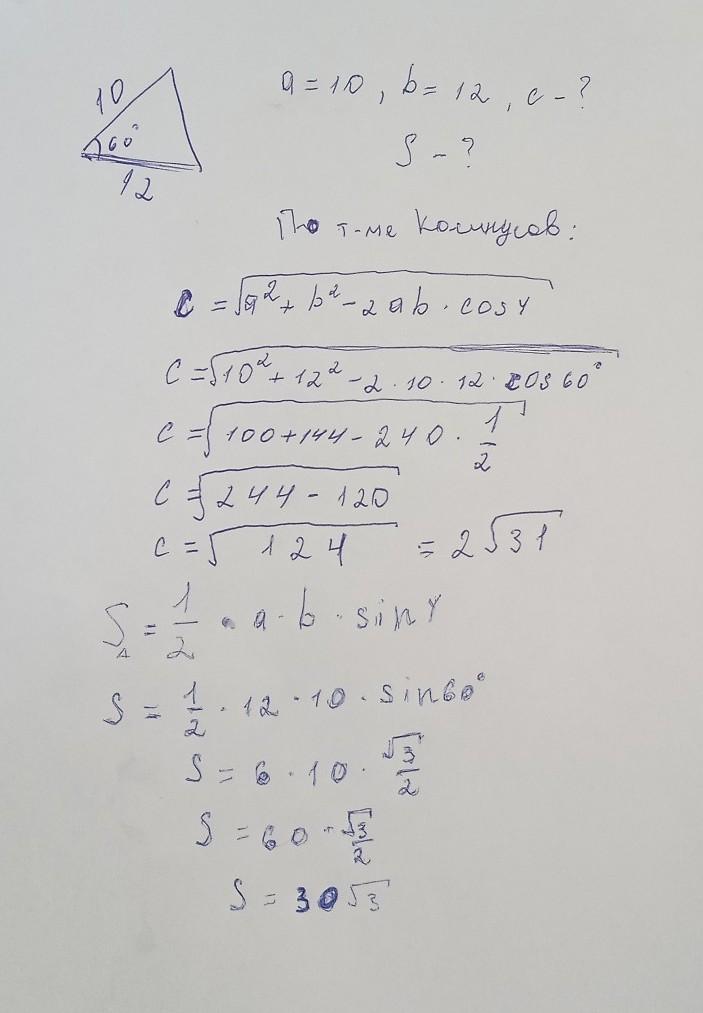 10
60°
12
a = 10, b = 12, c - ?
S - ?
По т-ме косинусов:
c = √a² + b² - 2ab · cos γ
c = √10² + 12² - 2 · 10 · 12 · cos 60°
c = √100 + 144 - 240 · 1/2
c = √244 - 120
c = √124 = 2√31
S△ = 1/2 · a · b · sin γ
S = 1/2 · 12 · 10 · sin 60°
S = 6 · 10 · √3/2
S = 60 · √3/2
S = 30√3